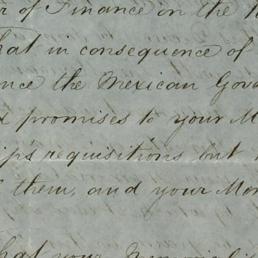 of Finance in the
that in consequence of
the Mexican Gov
promises to your M
requisitions but
them, and your Mor
hat your